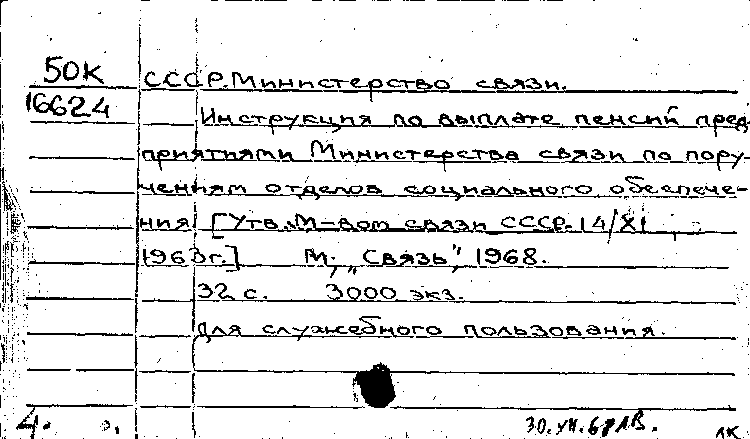 50К СССР. Министерство связи.
16624
Инструкция по выплате пенсий пред-
приятиями Министерства связи по пору-
чениям отделов социального обеспече-
ния [Утв. М-вом связи СССР. 14/XI
1963г.] М., „Связь", 1968.
32 с. 3000 экз.
Для служебного пользования.
4.
30. VII. 68 ЛВ.
ЛК